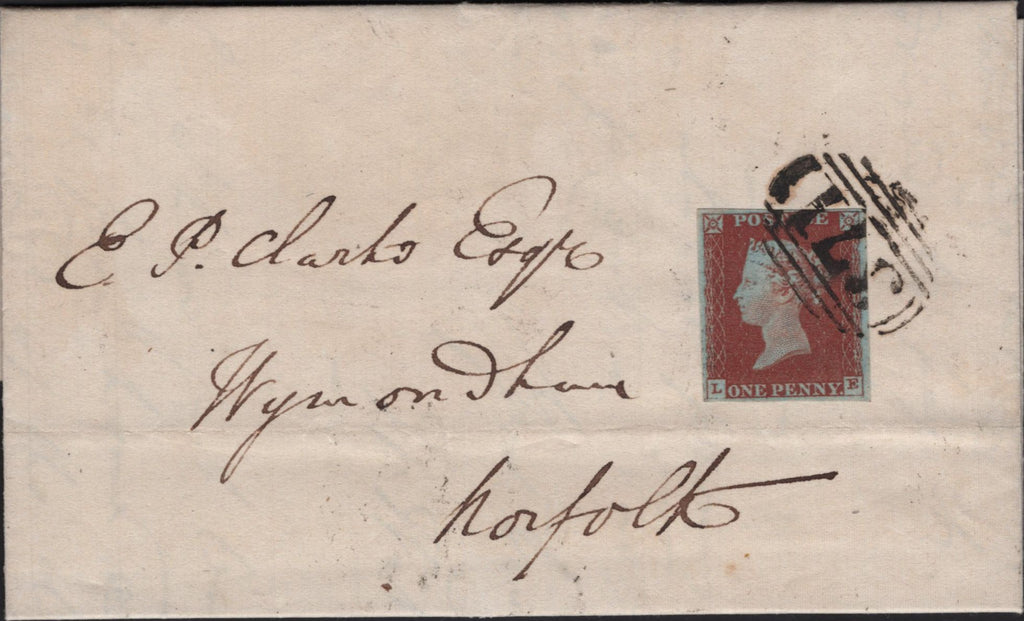 E. P. Clarke Esqre
Wymondham
Norfolk
POSTAGE
L ONE PENNY. E